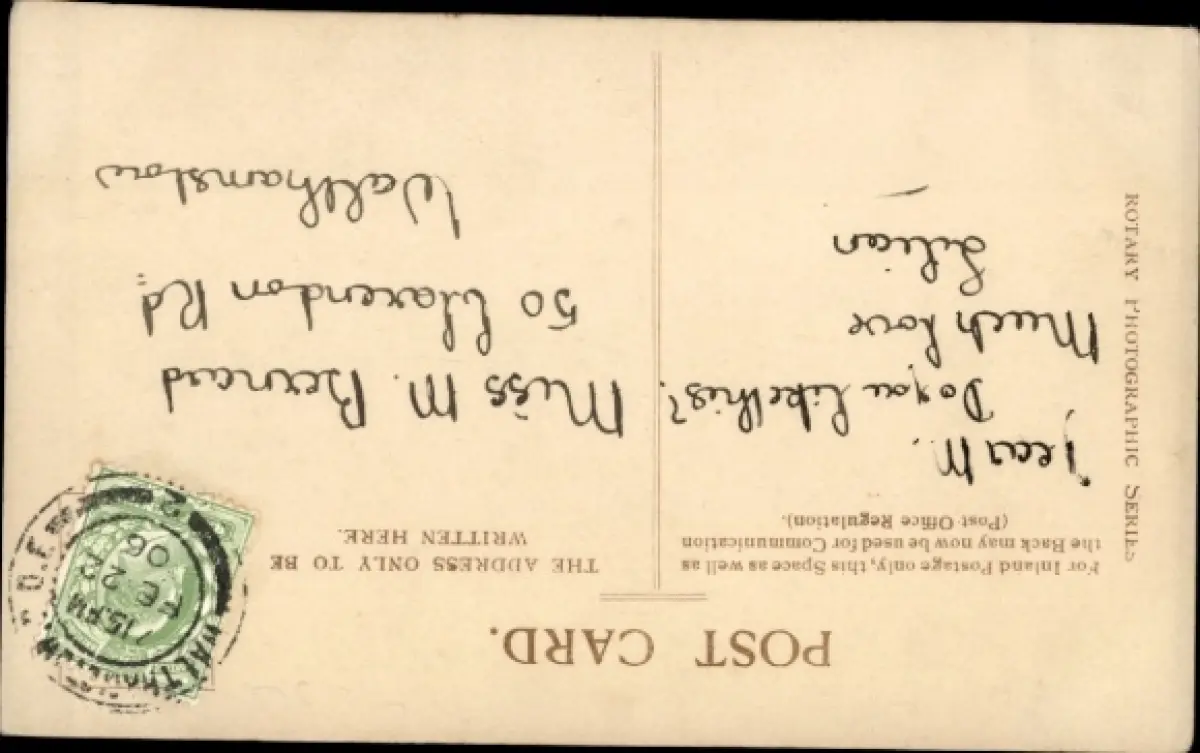 POST CARD.
For Inland Postage only, this Space as well as
the Back may now be used for Communication
(Post Office Regulation).
THE ADDRESS ONLY TO BE
WRITTEN HERE.
Dear M.
Do you like this?
Much love
Lilian
Miss M. Bernard
50 Clarendon Rd
Walthamstow
ROTARY PHOTOGRAPHIC SERIES
WALTHAMSTOW
S.O.E
7.15 PM
FE 2
06
2